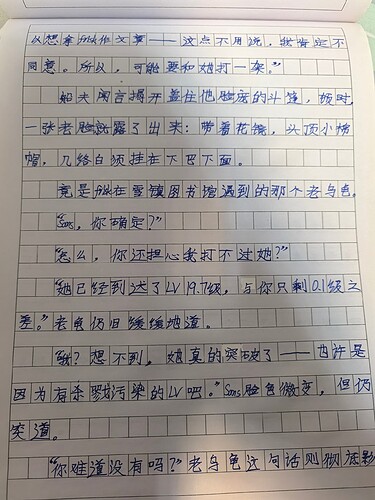 以想拿frisk作文章——这点不用说，我肯定不
同意。所以，可能要和她打一架。”
船夫闻言揭开盖住他脸庞的斗篷，顿时，
一张老脸就露了出来：带着花镜，头顶小棉
帽，几绺白须挂在下巴下面。
竟是frisk在雪镇图书馆遇到的那个老乌龟。
“Sans，你确定？”
“怎么，你还担心我打不过她？”
“她已经到达了LV 19.9级，与你只剩0.1级之
差。”老龟仍旧缓缓地道。
“哦？想不到，她真的突破了——也许是
因为有杀戮污染的LV吧。”Sans脸色微变，但仍
笑道。
“你难道没有吗？”老乌龟这句话则彻底影